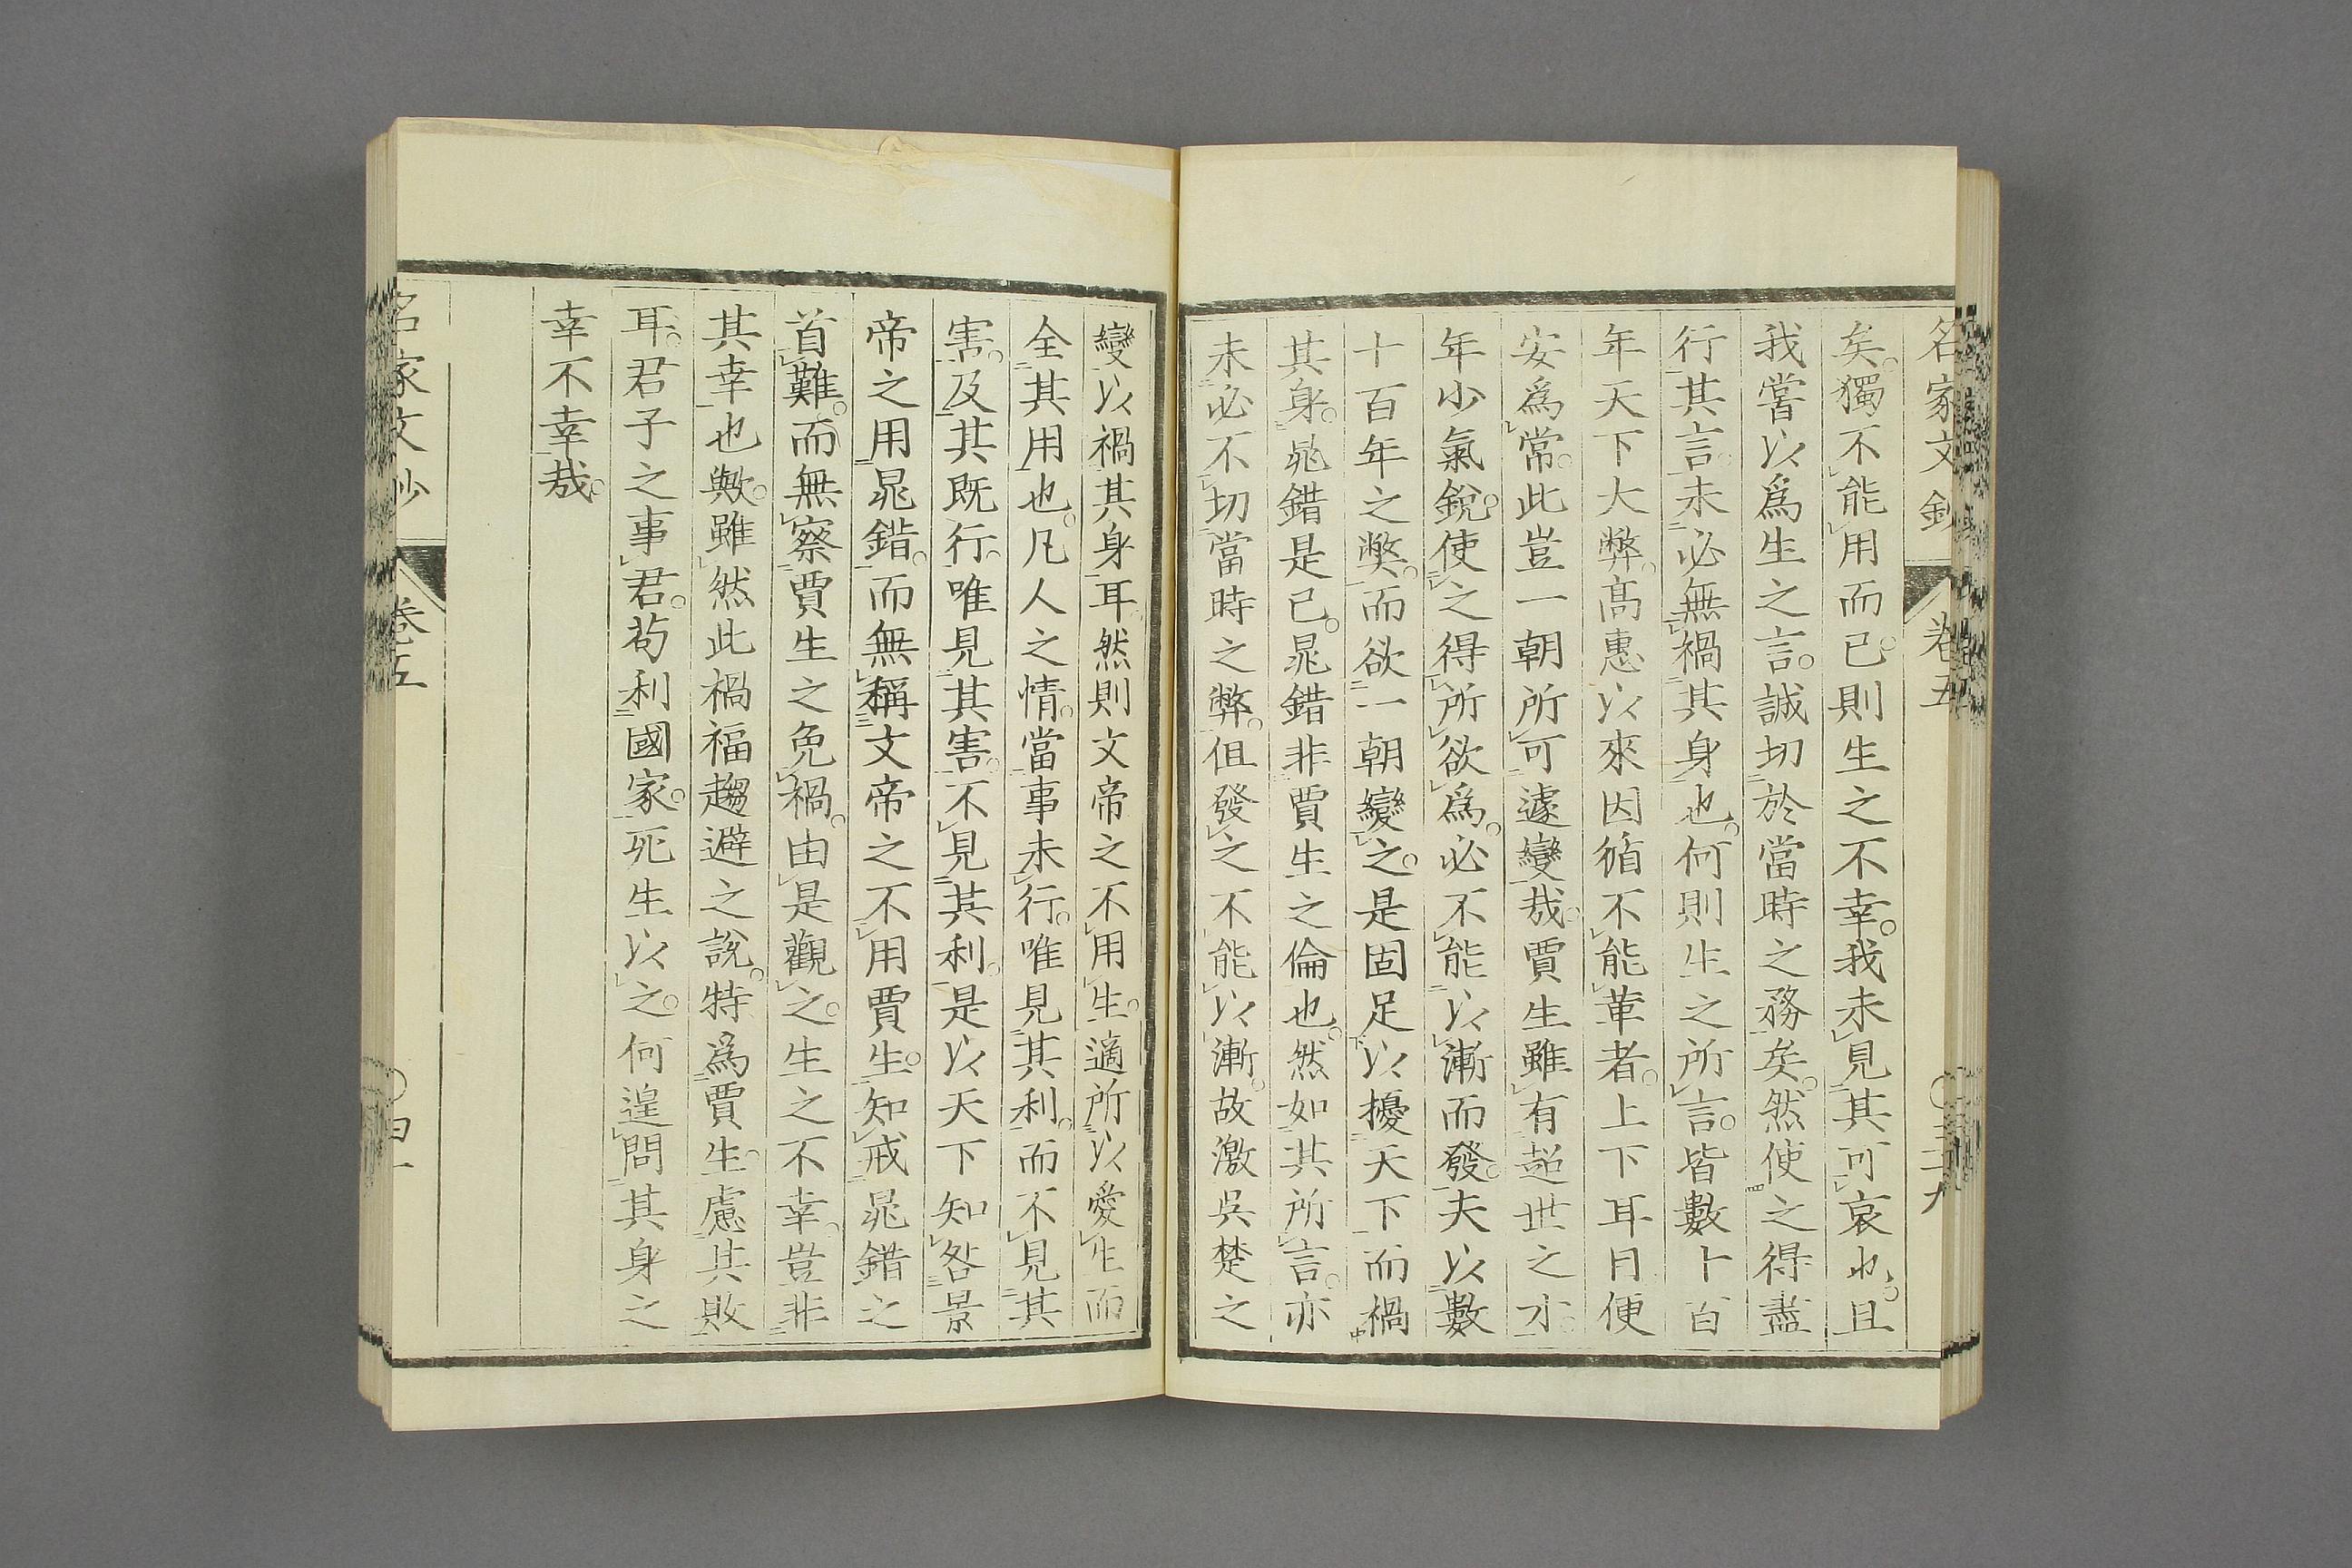 名家文鈔 卷五
矣。獨不能用而已。則生之不幸。我未見其可哀也。且
我嘗以爲生之言。誠切於當時之務矣。然使之得盡
行其言。未必無禍其身也。何則生之所言。皆數十百
年天下大弊。高惠以來因循不能革者。上下耳目便
安爲常。此豈一朝所可遽變哉。賈生雖有超世之才。
年少氣銳。使之得所欲爲。必不能以漸而發。夫以數
十百年之弊。而欲一朝變之。是固足以擾天下而禍
其身。晁錯是已。晁錯非賈生之倫也。然如其所言。亦
未必不切當時之弊。但發之不能以漸。故激吳楚之
變以禍其身耳。然則文帝之不用生。適所以愛生而
全其用也。凡人之情。當事未行。唯見其利。而不見其
害。及其既行。唯見其害。不見其利。是以天下知咎景
帝之用晁錯。而無稱文帝之不用賈生。知戒晁錯之
首難。而無察賈生之免禍。由是觀之。生之不幸。豈非
其幸也歟。雖然此禍福趨避之說。特爲賈生。慮其敗
耳。君子之事君。苟利國家。死生以之。何遑問其身之
幸不幸哉。
名家文鈔 卷五 四十